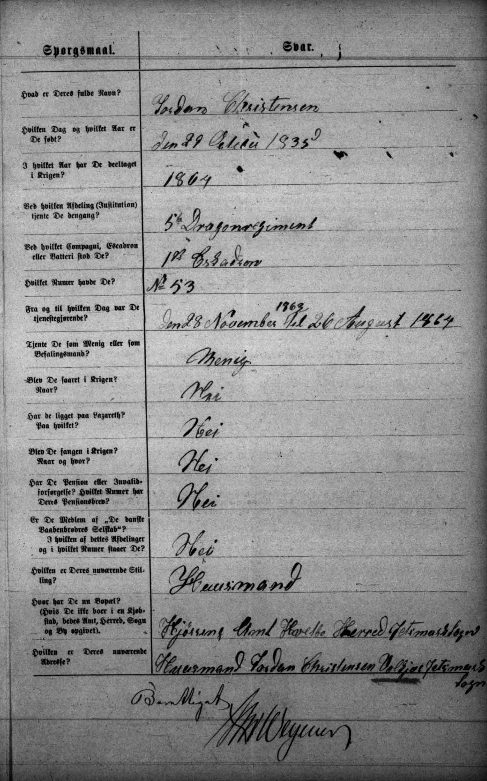 Spørgsmaal. Svar.
Hvad er Deres fulde Navn?
Jordan Christensen
Hvilken Dag og hvilket Aar er
De født?
den 29 1835
I hvilket Aar har De deeltaget
i Krigen?
1864
Ved hvilken Afdeling (Institution)
tjente De dengang?
5te Dragonregiment
Ved hvilket Compagni, Escadron
eller Batteri stod De?
1ste Eskadron
Hvilket Numer havde De?
Nº 53
Fra og til hvilken Dag var De
tjenestegjørende?
1863
den 28 November til 26 August 1864
Tjente De som Menig eller som
Befalingsmand?
Menig
Blev De saaret i Krigen?
Naar?
Nei
Har De ligget paa Lazareth?
Paa hvilket?
Nei
Blev De fangen i Krigen?
Naar og hvor?
Nei
Har De Pension eller Invalid-
forsørgelse? Hvilket Numer har
Deres Pensionsbrev?
Nei
Er De Medlem af „De danske
Vaabenbrødres Selskab“?
I hvilken af dettes Afdelinger
og i hvilket Numer staaer De?
Nei
Hvilken er Deres nuværende Stil-
ling?
Huusmand
Hvor har De nu Bopæl?
(Hvis De ikke boer i en Kjøb-
stad, bedes Amt, Herred, Sogn
og By opgivet).
Hjørring Amt Hvetbo Herred Jetsmark Sogn
Hvilken er Deres nuværende
Adresse?
Huusmand Jordan Christensen Jetsmark
Sogn